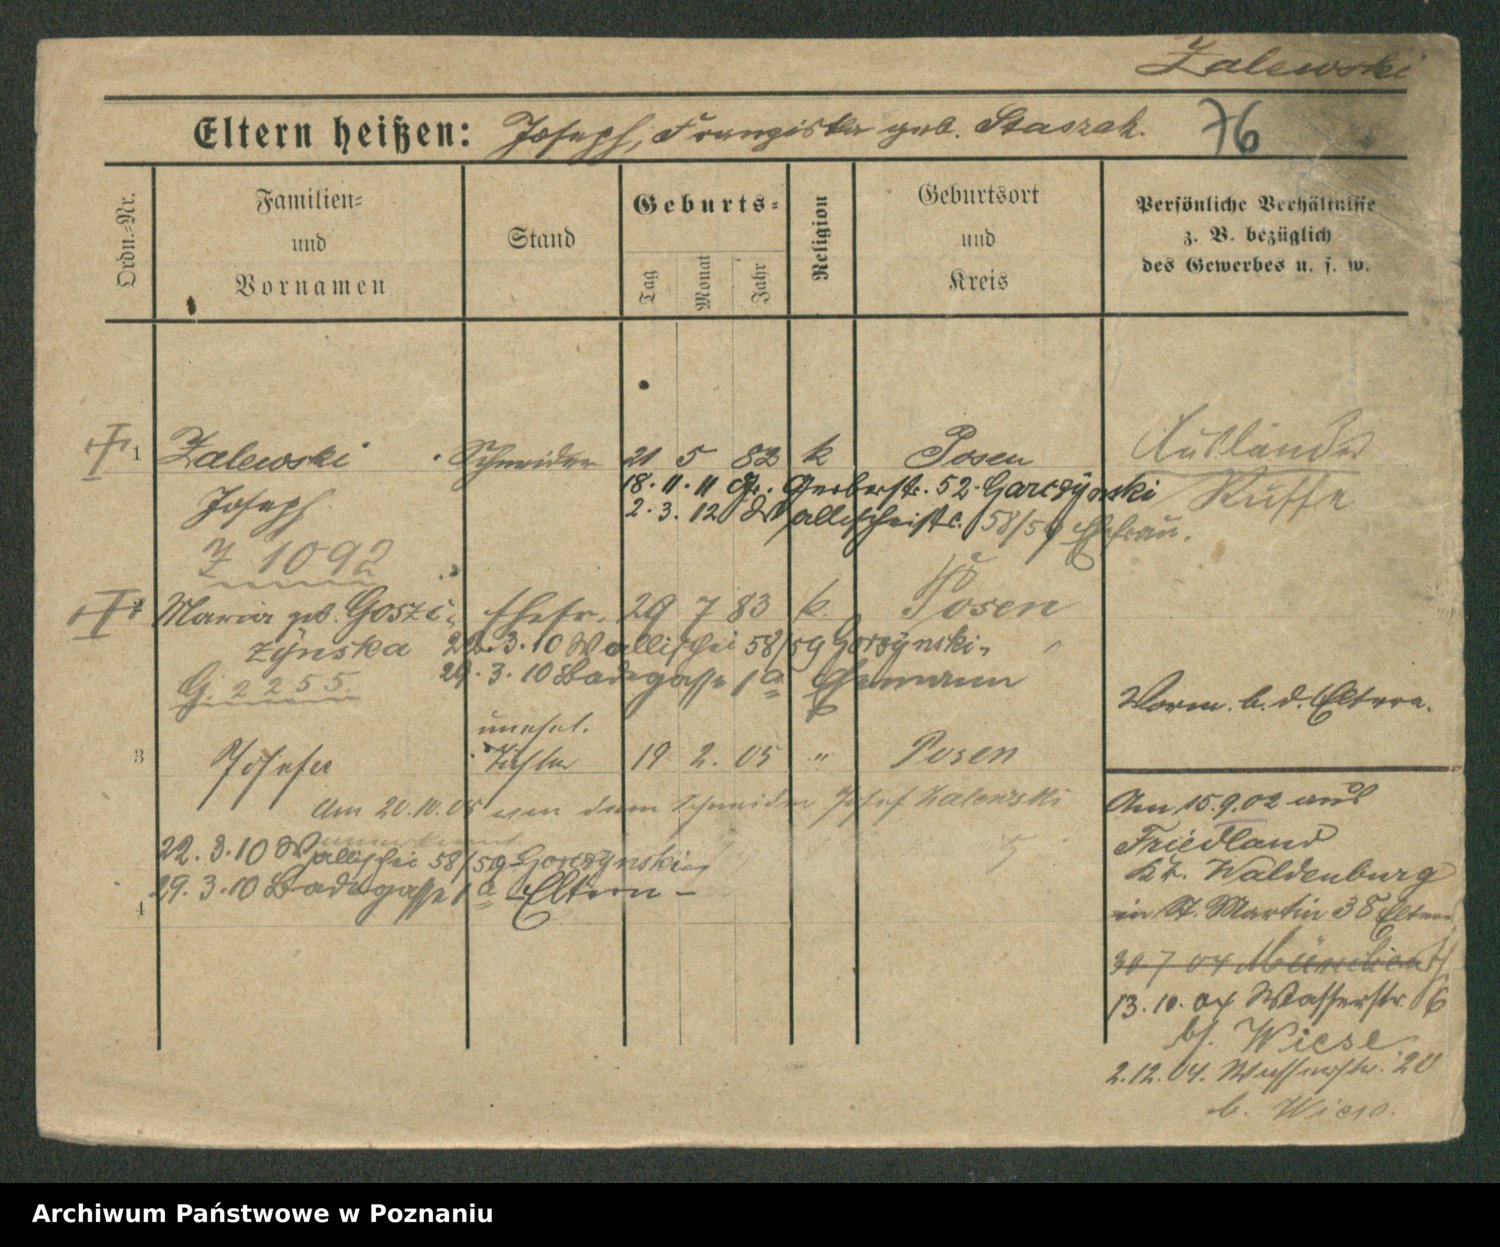 Zalewski
Eltern heißen: Joseph, Franziska geb. Staszak.
76
Ordn.-Nr.
Familien-
und
Vornamen
Stand
Geburts-
Tag
Monat
Jahr
Religion
Geburtsort
und
Kreis
Persönliche Verhältnisse
z. B. bezüglich
des Gewerbes u. s. w.
1 Zalewski Schneider 21 5 82 k Posen Ausländer
18.11.11 Gr. Gerberstr. 52 Garczynski Russe
Joseph 2.3.12 Wallischeistr. 58/59 Ehefrau.
Z 1092
2 Maria geb. Goszc- Ehefr. 29 7 83 k. Posen
zÿnska 22.3.10 Wallischei 58/59 Gorzÿnski-
G. 2255. 29.3.10 Badegasse 1a Ehemann
Vorm. b. d. Eltern.
unehel.
3 Josefa Tochter 19 2. 05 " Posen
Am 20.10.05 von dem Schneider Josef Zalewski
anerkannt
22.3.10 Wallischei 58/59 Gorczÿnski
29.3.10 Badegasse 1a Eltern -
4
Am 15.9.02 aus
Friedland
Kr. Waldenburg
in St. Martin 38 Eltern
30 7 04 München
13.10.04 Wasserstr. 6
bf. Wiese
2.12.04. Wasserstr. 20
b. Wiese.
Archiwum Państwowe w Poznaniu